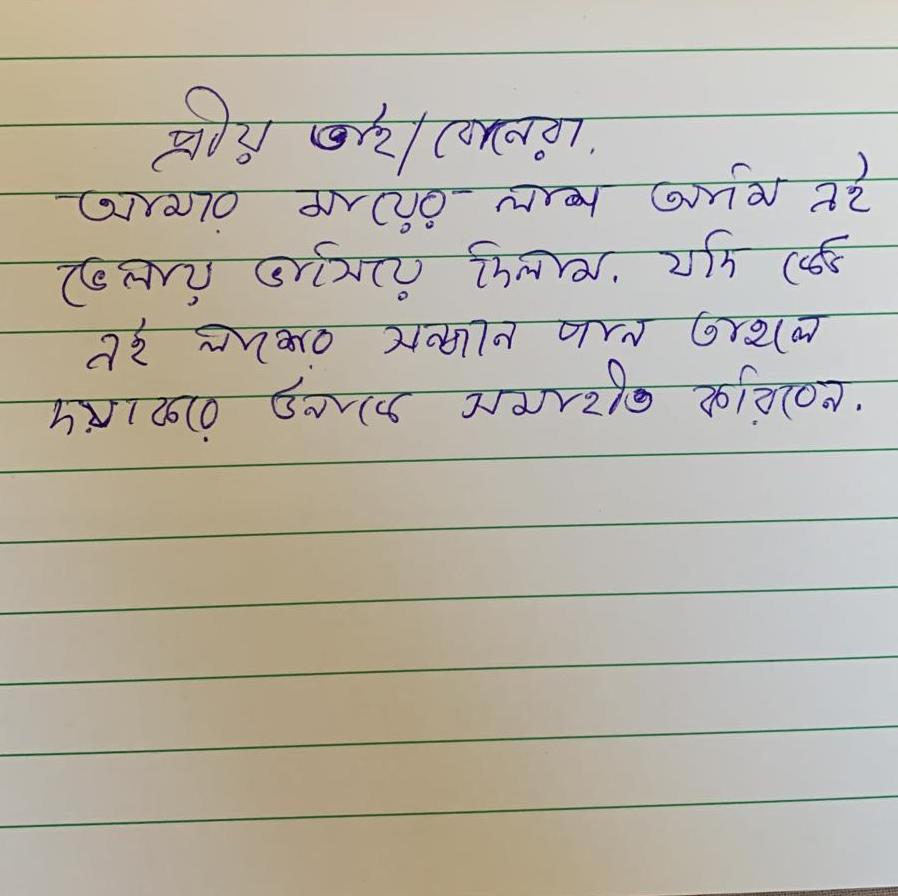 প্রীয় ভাই/বোনেরা,
আমার মায়ের লাশ আমি এই
ভেলায় ভাসিয়ে দিলাম. যদি কেউ
এই লাশের সন্ধান পান তাহলে
দয়াকরে ওনাকে সমাহীত করিবেন.